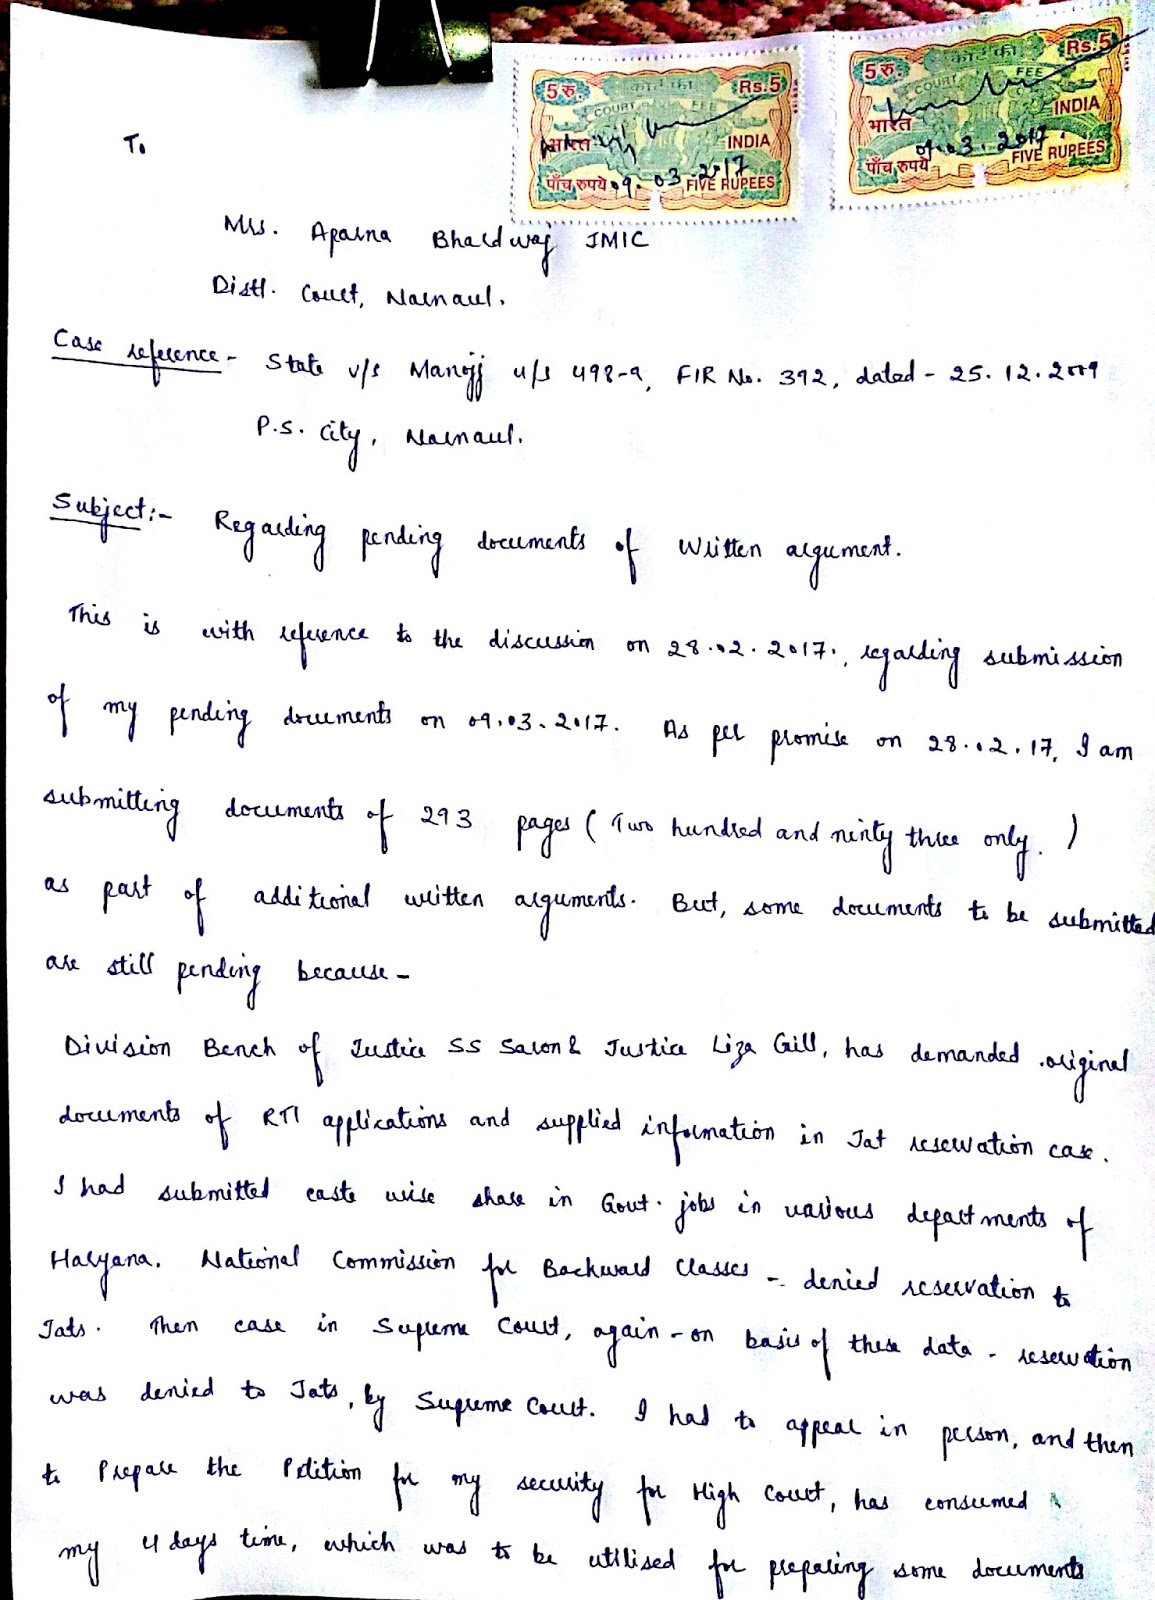 5 रु. कोर्ट फी Rs.5
COURT FEE
भारत INDIA
पाँच रुपये 09.03.2017 FIVE RUPEES
5 रु. कोर्ट फी Rs.5
COURT FEE
भारत INDIA
पाँच रुपये 09.03.2017. FIVE RUPEES
To
Mrs. Aparna Bhardwaj JMIC
Distt. Court, Narnaul.
Case reference - State v/s Manojj u/s 498-a, FIR No. 392, dated - 25.12.2009
P.S. City, Narnaul.
Subject:- Regarding pending documents of Written argument.
This is with reference to the discussion on 28.02.2017., regarding submission
of my pending documents on 09.03.2017. As per promise on 28.02.17, I am
submitting documents of 293 pages ( Two hundred and ninty three only. )
as part of additional written arguments. But, some documents to be submitted
are still pending because -
Division Bench of Justice SS Saron & Justice Liza Gill, has demanded original
documents of RTI applications and supplied information in Jat reservation case.
I had submitted caste wise share in Govt. jobs in various departments of
Haryana. National Commission for Backward Classes - denied reservation to
Jats. Then case in Supreme Court, again - on basis of these data - reservation
was denied to Jats, by Supreme Court. I had to appear in person, and then
to Prepare the Petition for my security for High Court, has consumed
my 4 days time, which was to be utilised for preparing some documents